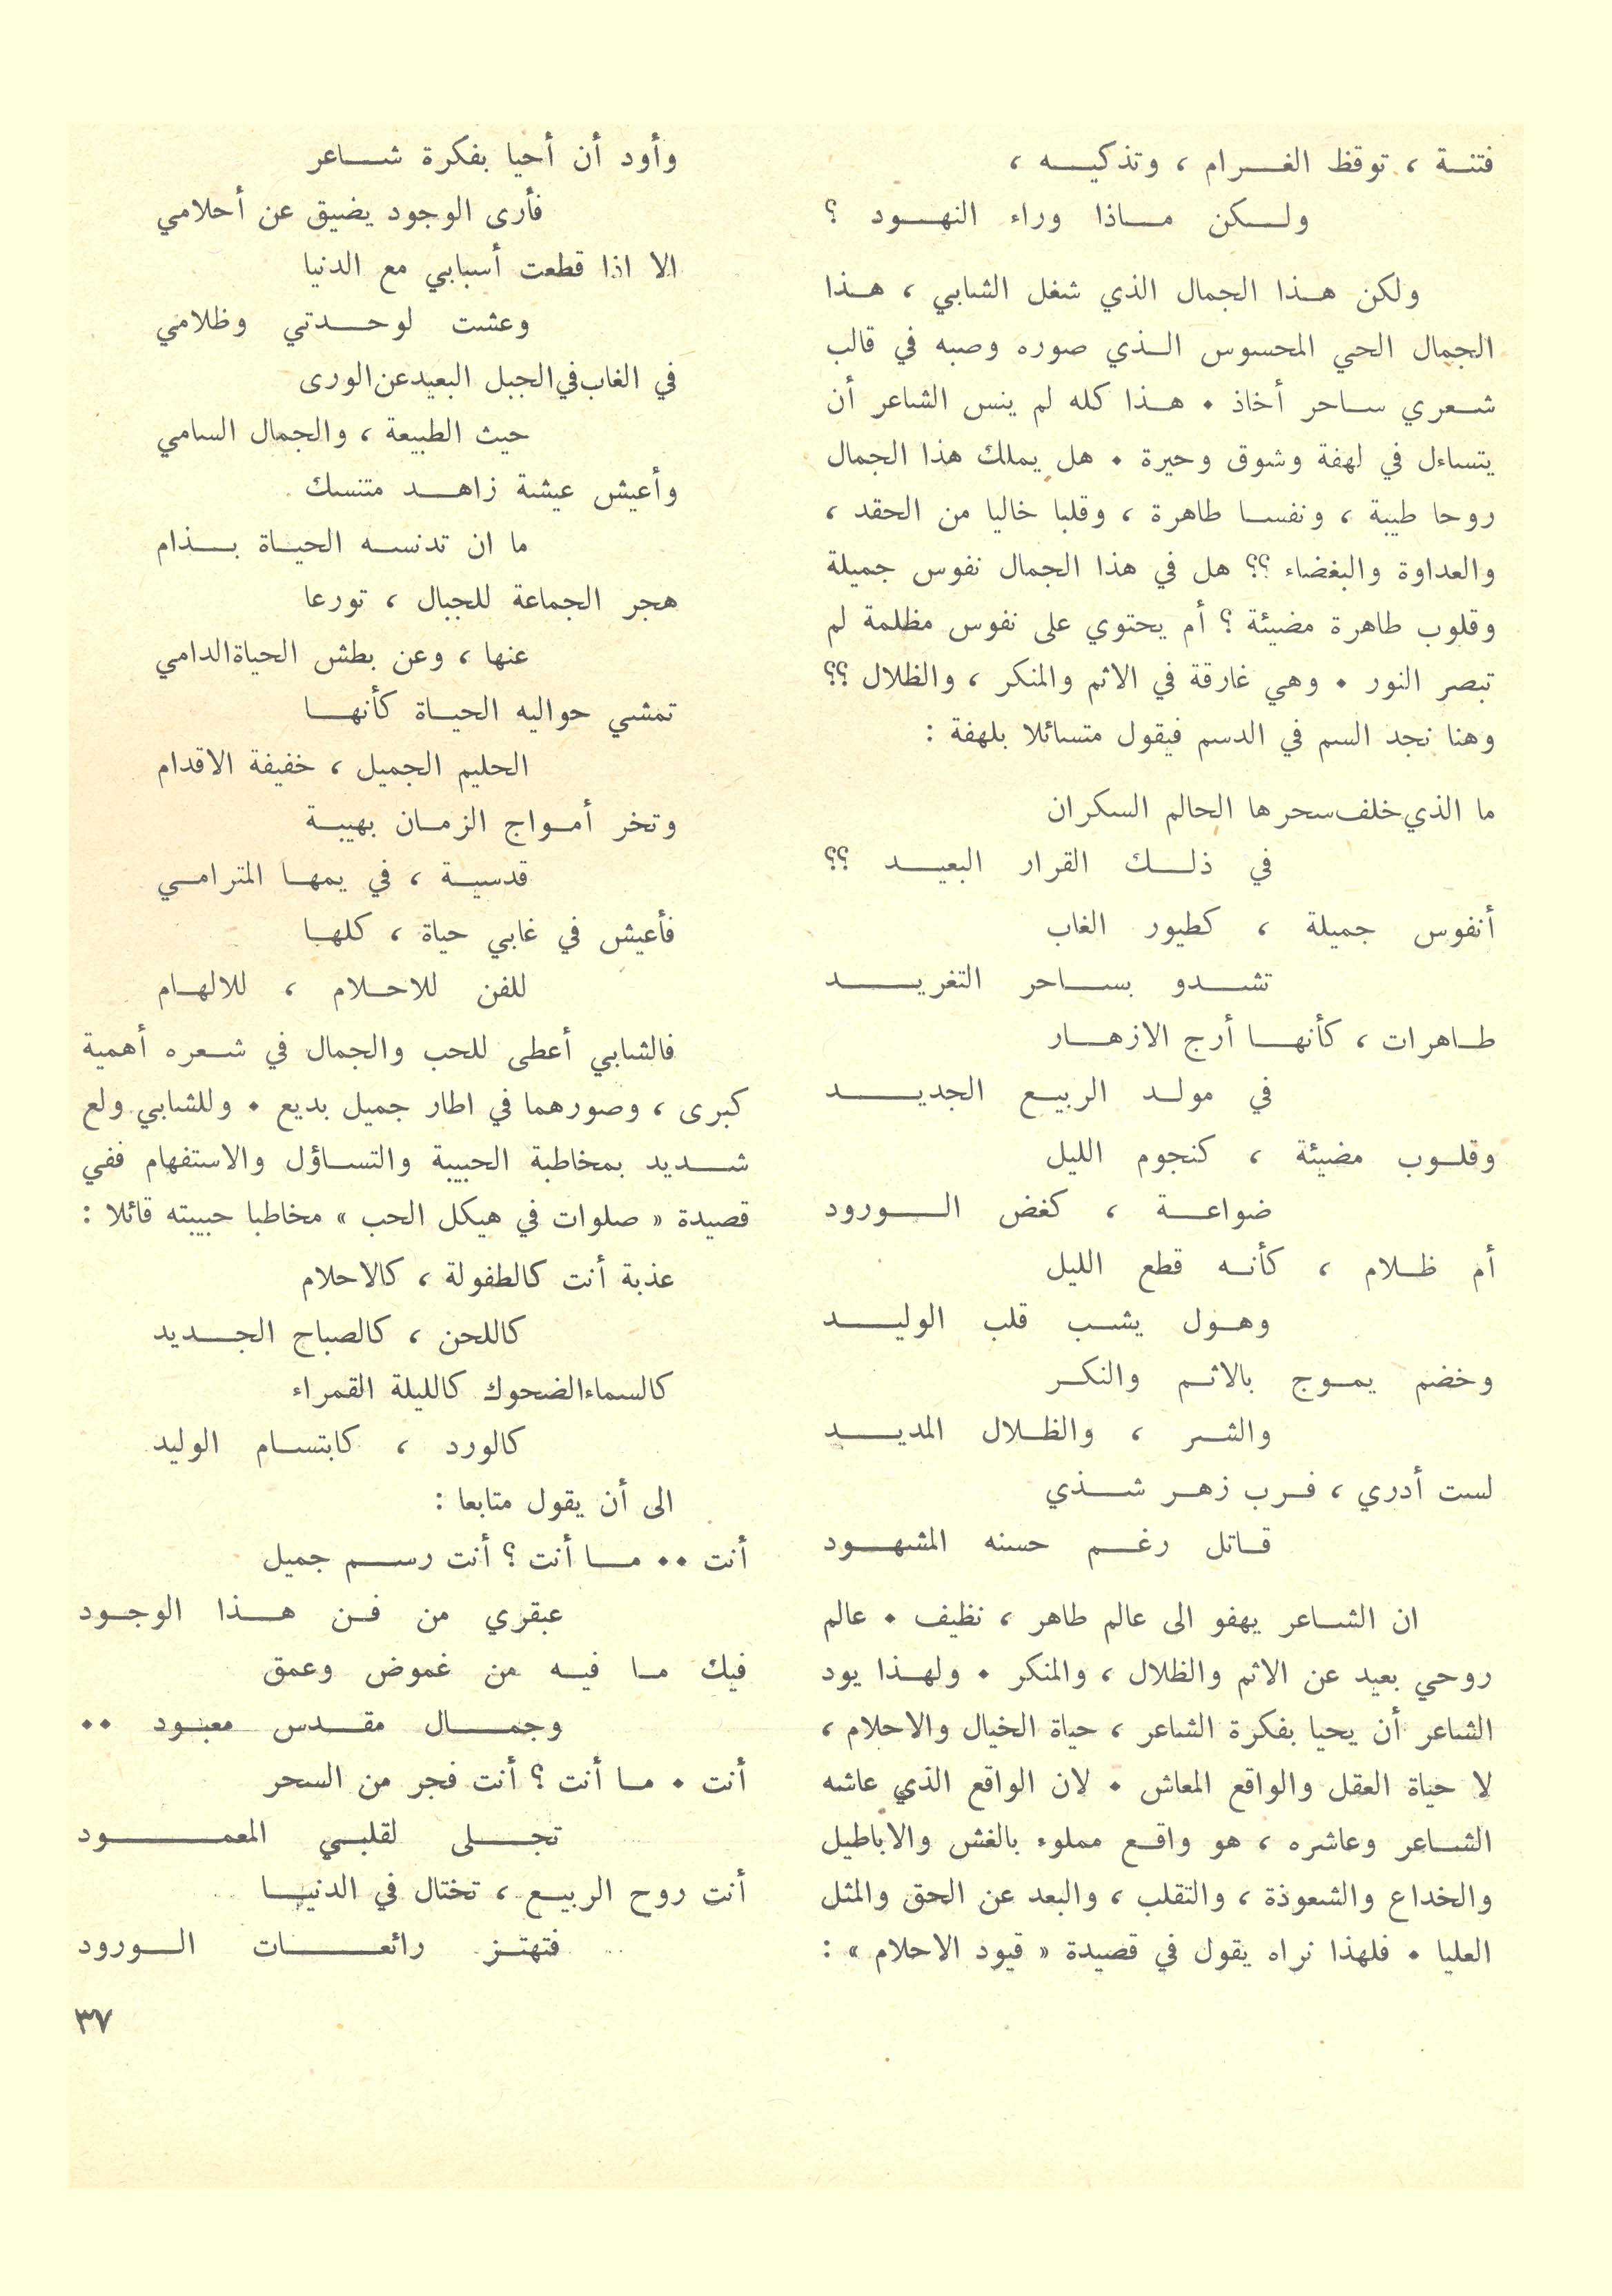 فتنة ، توقظ الغرام ، وتذكيه ،
ولكن ماذا وراء النهود ؟
ولكن هذا الجمال الذي شغل الشابي ، هذا
الجمال الحي المحسوس الذي صوره وصبه في قالب
شعري ساحر أخاذ . هذا كله لم ينس الشاعر أن
يتساءل في لهفة وشوق وحيرة . هل يملك هذا الجمال
روحا طيبة ، ونفسا طاهرة ، وقلبا خاليا من الحقد ،
والعداوة والبغضاء ؟؟ هل في هذا الجمال نفوس جميلة
وقلوب طاهرة مضيئة ؟ أم يحتوي على نفوس مظلمة لم
تبصر النور . وهي غارقة في الاثم والمنكر ، والظلال ؟؟
وهنا نجد السم في الدسم فيقول متسائلا بلهفة :
ما الذي خلف سحرها الحالم السكران
في ذلك القرار البعيد ؟؟
أنفوس جميلة ، كطيور الغاب
تشدو بساحر التغريد
طاهرات ، كأنها أرج الازهار
في مولد الربيع الجديد
وقلوب مضيئة ، كنجوم الليل
ضواعة ، كغض الورود
أم ظلام ، كأنه قطع الليل
وهول يشب قلب الوليد
وخضم يموج بالاثم والنكر
والشر ، والظلال المديد
لست أدري ، فرب زهر شذي
قاتل رغم حسنه المشهود
ان الشاعر يهفو الى عالم طاهر ، نظيف . عالم
روحي بعيد عن الاثم والظلال ، والمنكر . ولهذا يود
الشاعر أن يحيا بفكرة الشاعر ، حياة الخيال والاحلام ،
لا حياة العقل والواقع المعاش . لان الواقع الذي عاشه
الشاعر وعاشره ، هو واقع مملوء بالغش والاباطيل
والخداع والشعوذة ، والتقلب ، والبعد عن الحق والمثل
العليا . فلهذا نراه يقول في قصيدة « قيود الاحلام » :
وأود أن أحيا بفكرة شاعر
فأرى الوجود يضيق عن أحلامي
الا اذا قطعت أسبابي مع الدنيا
وعشت لوحدتي وظلامي
في الغاب في الجبل البعيد عن الورى
حيث الطبيعة ، والجمال السامي
وأعيش عيشة زاهد متنسك
ما ان تدنسه الحياة بذام
هجر الجماعة للجبال ، تورعا
عنها ، وعن بطش الحياة الدامي
تمشي حواليه الحياة كأنها
الحليم الجميل ، خفيفة الاقدام
وتخر أمواج الزمان بهيبة
قدسية ، في يمها المترامي
فأعيش في غابي حياة ، كلها
للفن للاحلام ، للالهام
فالشابي أعطى للحب والجمال في شعره أهمية
كبرى ، وصورهما في اطار جميل بديع . وللشابي ولع
شديد بمخاطبة الحبيبة والتساؤل والاستفهام ففي
قصيدة « صلوات في هيكل الحب » مخاطبا حبيبته قائلا :
عذبة أنت كالطفولة ، كالاحلام
كاللحن ، كالصباح الجديد
كالسماء الضحوك كالليلة القمراء
كالورد ، كابتسام الوليد
الى أن يقول متابعا :
أنت .. ما أنت ؟ أنت رسم جميل
عبقري من فن هذا الوجود
فيك ما فيه من غموض وعمق
وجمال مقدس معبود ..
أنت . ما أنت ؟ أنت فجر من السحر
تجلى لقلبي المعمود
أنت روح الربيع ، تختال في الدنيا
فتهتز رائعات الورود
٣٧